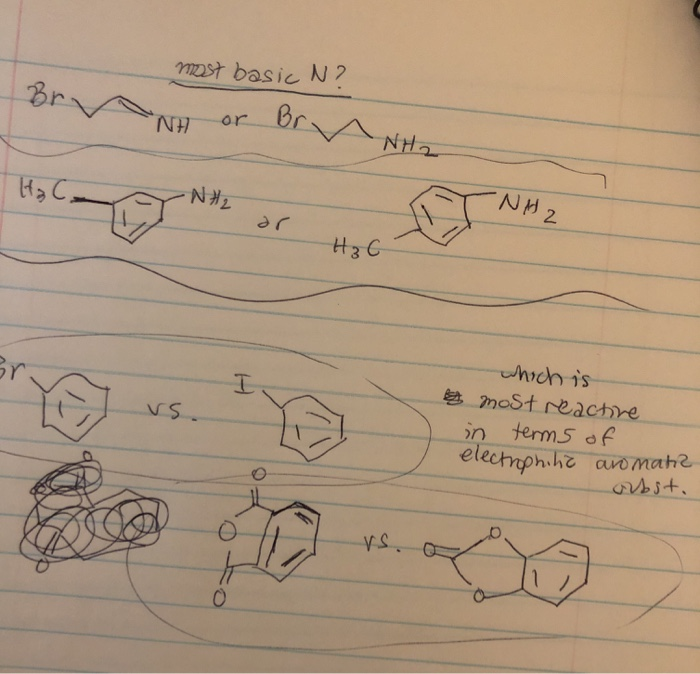 most basic N?
Br NH or Br NH2
H3C NH2 or H3C NH2
Br vs. I
which is
most reactive
in terms of
electrophilic aromatic
subst.
O O O vs. O O O